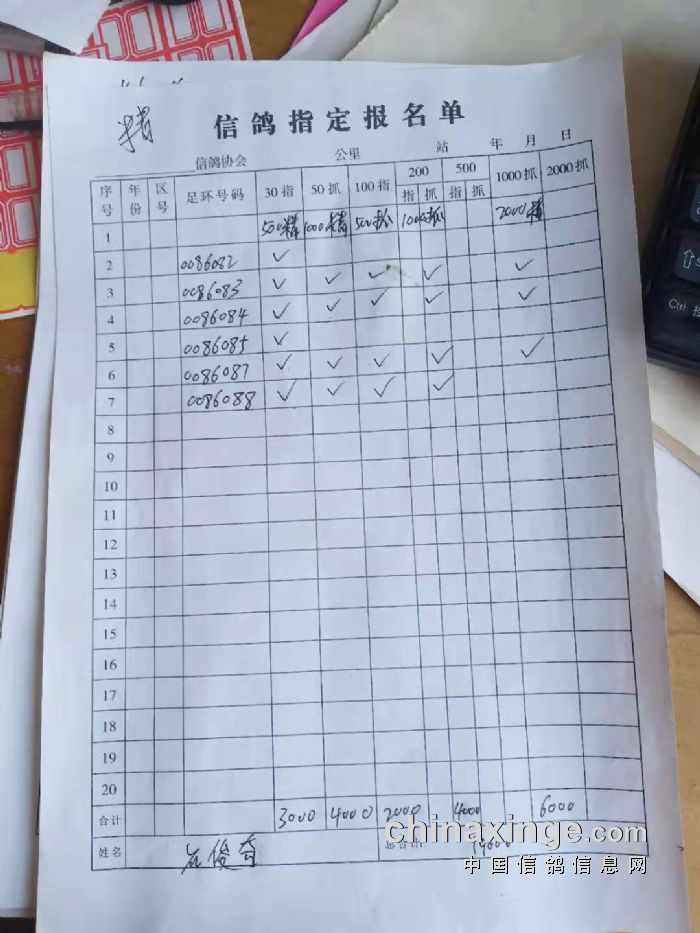 信鸽指定报名单
信鸽协会 公里 站 年 月 日
序号 年份 区号 足环号码 30指 50抓 100指 200 500 1000抓 2000抓
指 抓 指 抓
1 500精 1000精 500抓 1000抓 2000精
2 0086082 ✓
3 0086083 ✓ ✓ ✓ ✓ ✓
4 0086084 ✓ ✓ ✓ ✓ ✓
5 0086085 ✓
6 0086087 ✓ ✓ ✓ ✓ ✓
7 0086088 ✓ ✓ ✓ ✓
8
9
10
11
12
13
14
15
16
17
18
19
20
合计 3000 4000 2000 4000 6000
姓名 俊奇 总合计
chinaxinge.com
中国信鸽信息网
Ctrl